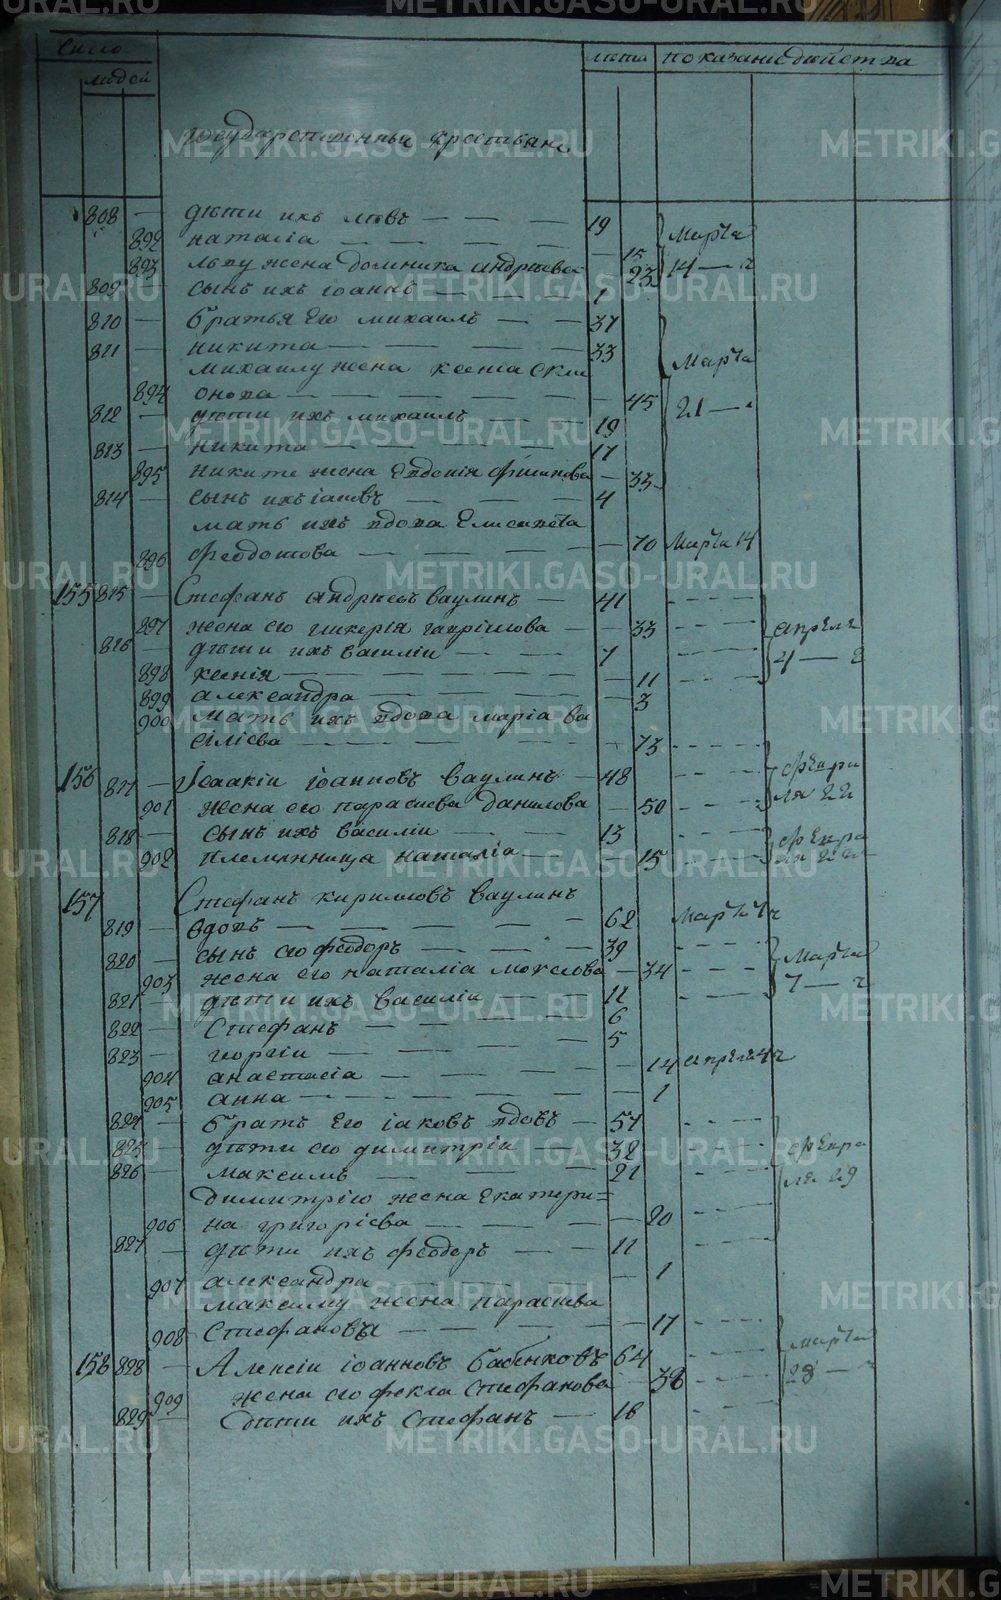 Число
людей
лѣта показаніе дѣйства
Государственныи крестьяне
808 — дѣти ихъ Левъ — — — 19
892 наталіа — — — — 15 Марта
893 льву жена Домника андреева 23 14 — ч
809 — сынъ ихъ іоаннъ — — — 1
810 — братья его михаилъ — — 37
811 — никита — — — — 33
михаилу жена ксенія Сем Марта
894 онова — — — — — 45
812 — дѣти ихъ михаилъ — — 19 21 — ч
813 — никита — — — — 17
895 никите жена Евдокія филипова — 33
814 — сынъ ихъ іаковъ — — — 4
мать ихъ вдова Елисавета
896 феодотова — — — — — 70 Марта 14
155 815 — Стефанъ андреевъ ваулинъ — 41
897 жена его гликерія гавріилова — 33 апреля
816 — дѣти ихъ василіи — — 7 4 — ч
898 ксенія — — — — — 11
899 александра — — — — 3
900 мать ихъ вдова маріа ва
сіліева — — — — — 73
156 817 — Исаакіи іоанновъ ваулинъ — 48 февра
901 жена его парасиева данилова — 50 ля 22
818 — сынъ ихъ василіи — — 13 февра
902 племянница наталіа — — 15 ля 22
157 Стефанъ кириловъ ваулинъ
819 — вдовъ — — — — — 62 Марта 7 ч
820 — сынъ его феодоръ — — — 39 Марта
903 жена его наталіа мокеева — 34 7 — ч
821 — дѣти ихъ василіи — — 11
822 — Стефанъ — — — — 6
823 — георгіи — — — — 5
904 анастасіа — — — — 14 апреля 4 ч
905 анна — — — — — 1
824 — братъ его іаковъ вдовъ — 57
825 — дѣти его димитріи — — 32 февра
826 — максимъ — — — — 21 ля 29
димитрію жена екатери=
906 на григоріева — — — — 20
827 — дѣти ихъ феодоръ — — 11
907 александра — — — — 1
максиму жена парасиева
908 Стефанова — — — — 17
158 828 — Алексіи іоанновъ бабенковъ 64 марта
909 жена его фекла стефанова — 38 28 — ч
829 — дѣти ихъ Стефанъ — 18
METRIKI.GASO-URAL.RU